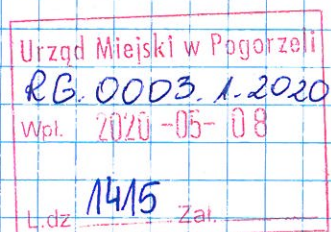 Urząd Miejski w Pogorzeli
RG. 0003.1.2020
Wpł. 2020 -05- 08
L.dz 1415 Zał.